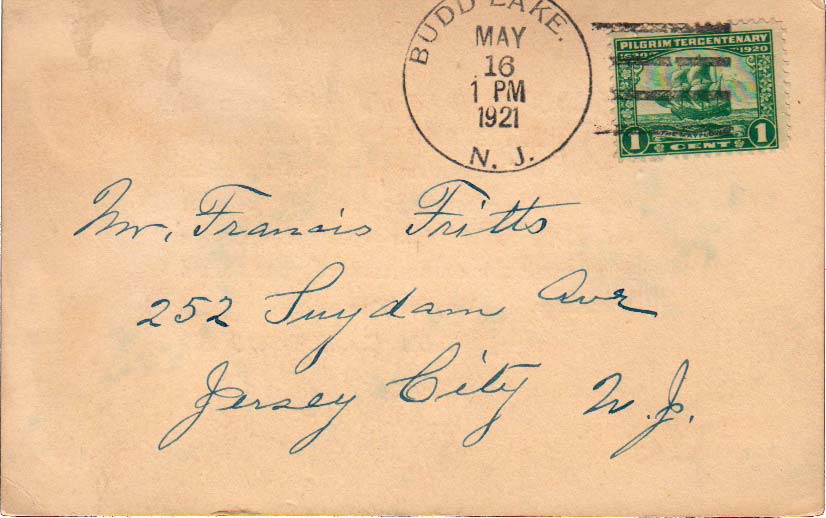 BUDD LAKE.
MAY
16
1 PM
1921
N. J.
PILGRIM TERCENTENARY
1620 1920
1 CENT 1
Mr. Francis Fritts
252 Suydam Ave
Jersey City N.J.